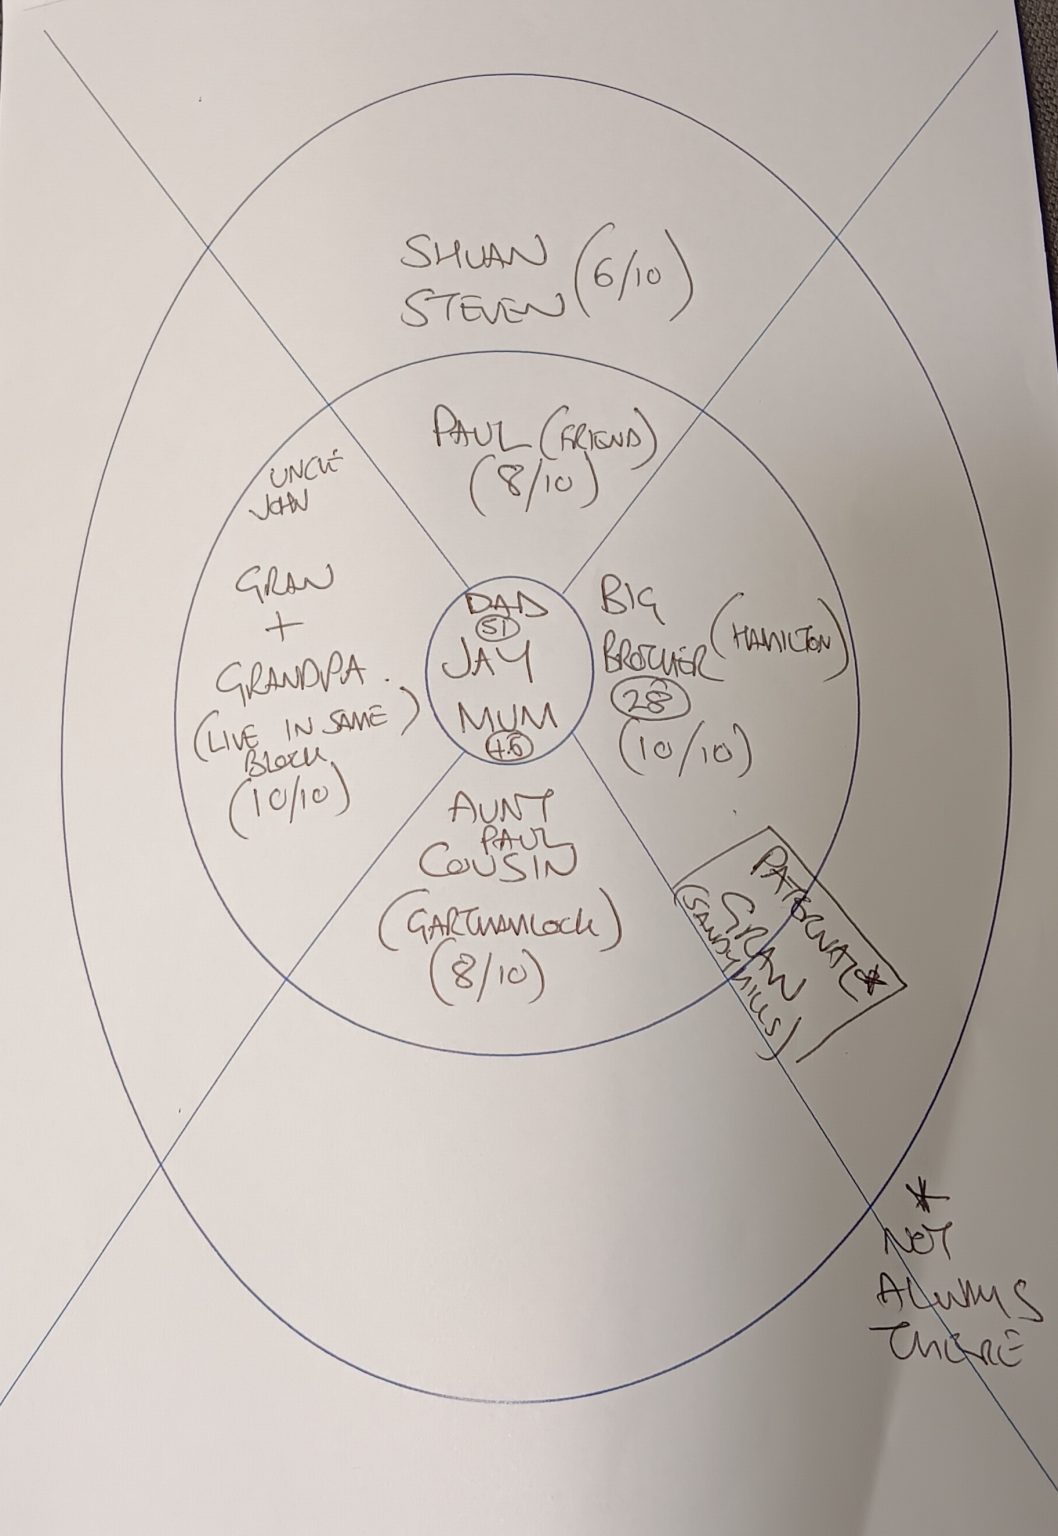 SHUAN
STEVEN
(6/10)
PAUL (FRIEND)
(8/10)
UNCLE
JOHN
GRAN
+
GRANDPA.
(LIVE IN SAME
BLOCK)
(10/10)
DAD
51
JAY
MUM
46
BIG
BROTHER
(HAMILTON)
28
(10/10)
AUNT
PAUL
COUSIN
(GARTHAMLOCK)
(8/10)
PATERNAL*
GRAN
(SANDYHILLS)
*
NOT
ALWAYS
THERE